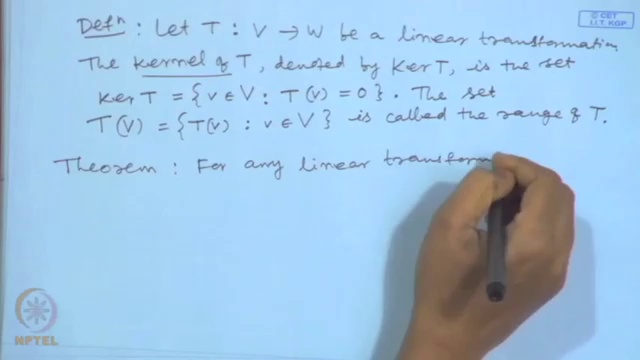 © CET
I.I.T. KGP
Defⁿ : Let T : V → W be a linear transformation
The kernel of T, denoted by Ker T, is the set
Ker T = {v ∈ V : T(v) = 0}. The set
T(V) = {T(v) : v ∈ V} is called the range of T.
Theorem : For any linear transform
NPTEL